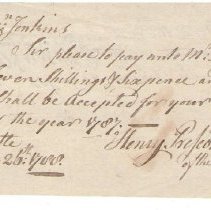 Jenkins
Sir please to pay unto Mr
Seven Shillings & Sixpence an
Shall be Accepted for your
of the year 1787
Henry Presco
of the
1788.